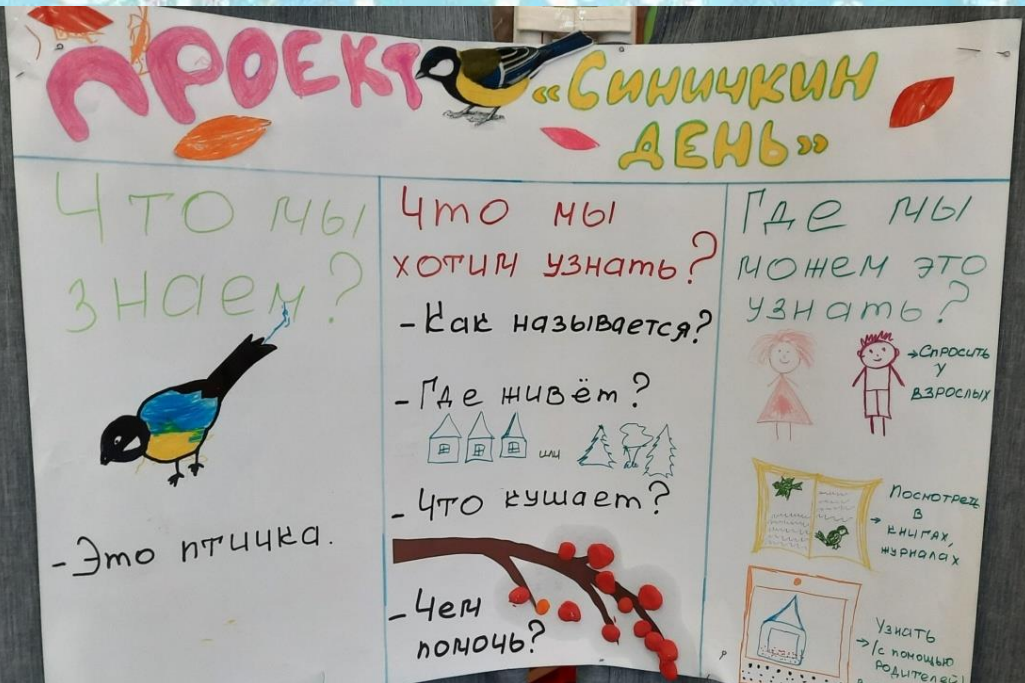 ПРОЕКТ «Синичкин
ДЕНЬ»
Что мы
знаем?
- Это птичка.
Что мы
хотим узнать?
- Как называется?
- Где живёт?
или
- Что кушает?
- Чем
помочь?
Где мы
можем это
узнать?
→ Спросить
у
взрослых
→ Посмотреть
в
книгах,
журналах
→ Узнать
/с помощью
родителей/